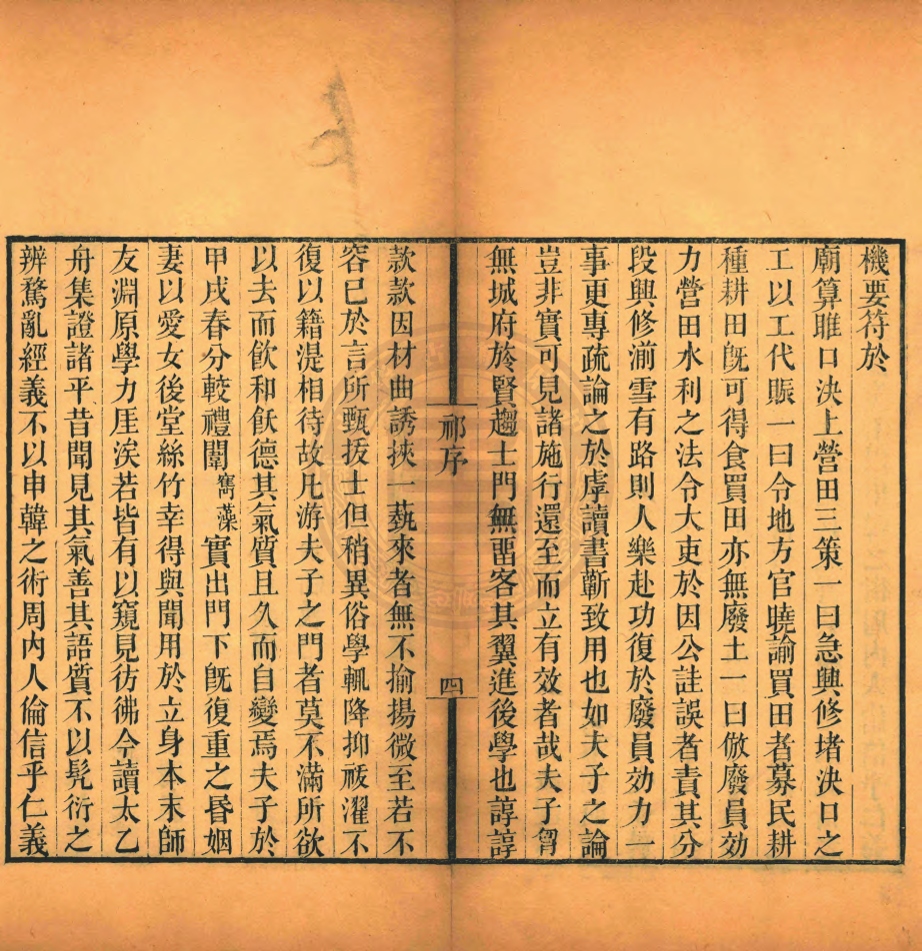 機要符於
廟算睢口決上營田三策一曰急興修堵決口之
工以工代賑一曰令地方官曉諭買田者募民耕
種耕田旣可得食買田亦無廢土一曰倣廢員効
力營田水利之法令大吏於因公詿誤者責其分
段興修湔雪有路則人樂赴功復於廢員効力一
事更專疏論之於虖讀書蘄致用也如夫子之論
豈非實可見諸施行還至而立有效者哉夫子胷
無城府於賢趨士門無畱客其翼進後學也諄諄
祁序
四
款款因材曲誘挾一蓺來者無不揄揚微至若不
容已於言所甄拔士但稍異俗學輒降抑祓濯不
復以籍湜相待故凡游夫子之門者莫不滿所欲
以去而飲和飫德其氣質且久而自變焉夫子於
甲戌春分較禮闈寯藻實出門下旣復重之昬姻
妻以愛女後堂絲竹幸得與聞用於立身本末師
友淵原學力厓涘若皆有以窺見彷彿今讀太乙
舟集證諸平昔聞見其氣善其語質不以髡衍之
辨騖亂經義不以申韓之術周內人倫信乎仁義